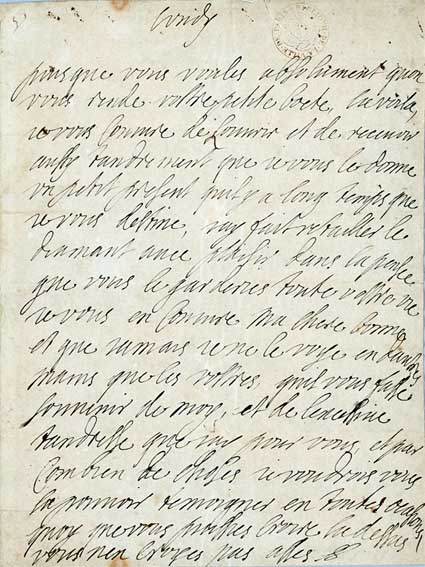 puis que vous voules absolument quon
vous rende vostre petite boete, la voila,
ie vous coniure de louurir et de receuoir
aussy tandrement que ie vous le donne
vn petit present quil y a long temps que
ie vous destine, iay fait retailler le
diamant auec plaisir dans la pensee
que vous le garderies toute vostre vie
ie vous en coniure ma chere bonne
et que iamais ie ne le voye en dautres
mains que les vostres, quil vous fasse
souuenir de moy, et de lexcessiue
tandresse que iay pour vous, et par
combien de choses ie voudrois vous
la pouuoir temoigner en toutes ocasions
quoy que vous puissies croire la dessus
vous nen croyes pas asses